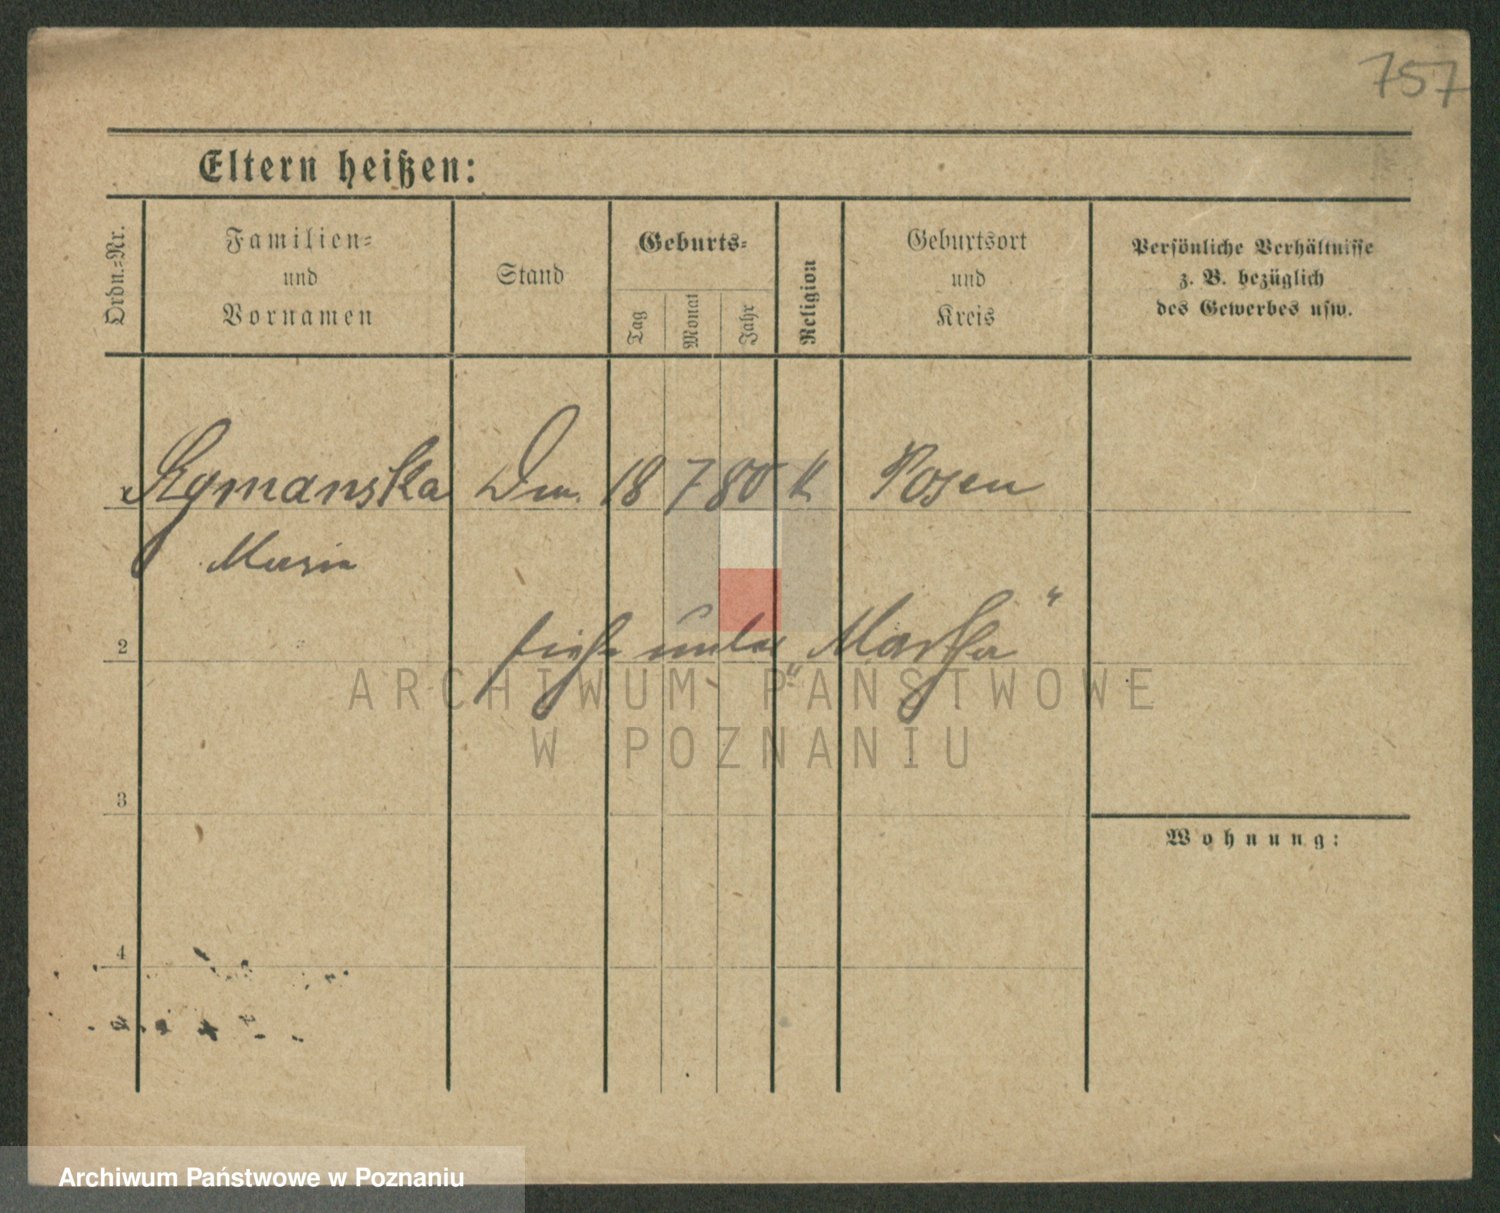 757
Eltern heißen:
Ordn.-Nr.
Familien-
und
Vornamen
Stand
Geburts-
Tag
Monat
Jahr
Religion
Geburtsort
und
Kreis
Persönliche Verhältnisse
z. B. bezüglich
des Gewerbes usw.
Szymanska 18 7 80 K Posen
Maria
2
siehe unter „Martha“
3
Wohnung:
4
ARCHIWUM PAŃSTWOWE
W POZNANIU
Archiwum Państwowe w Poznaniu